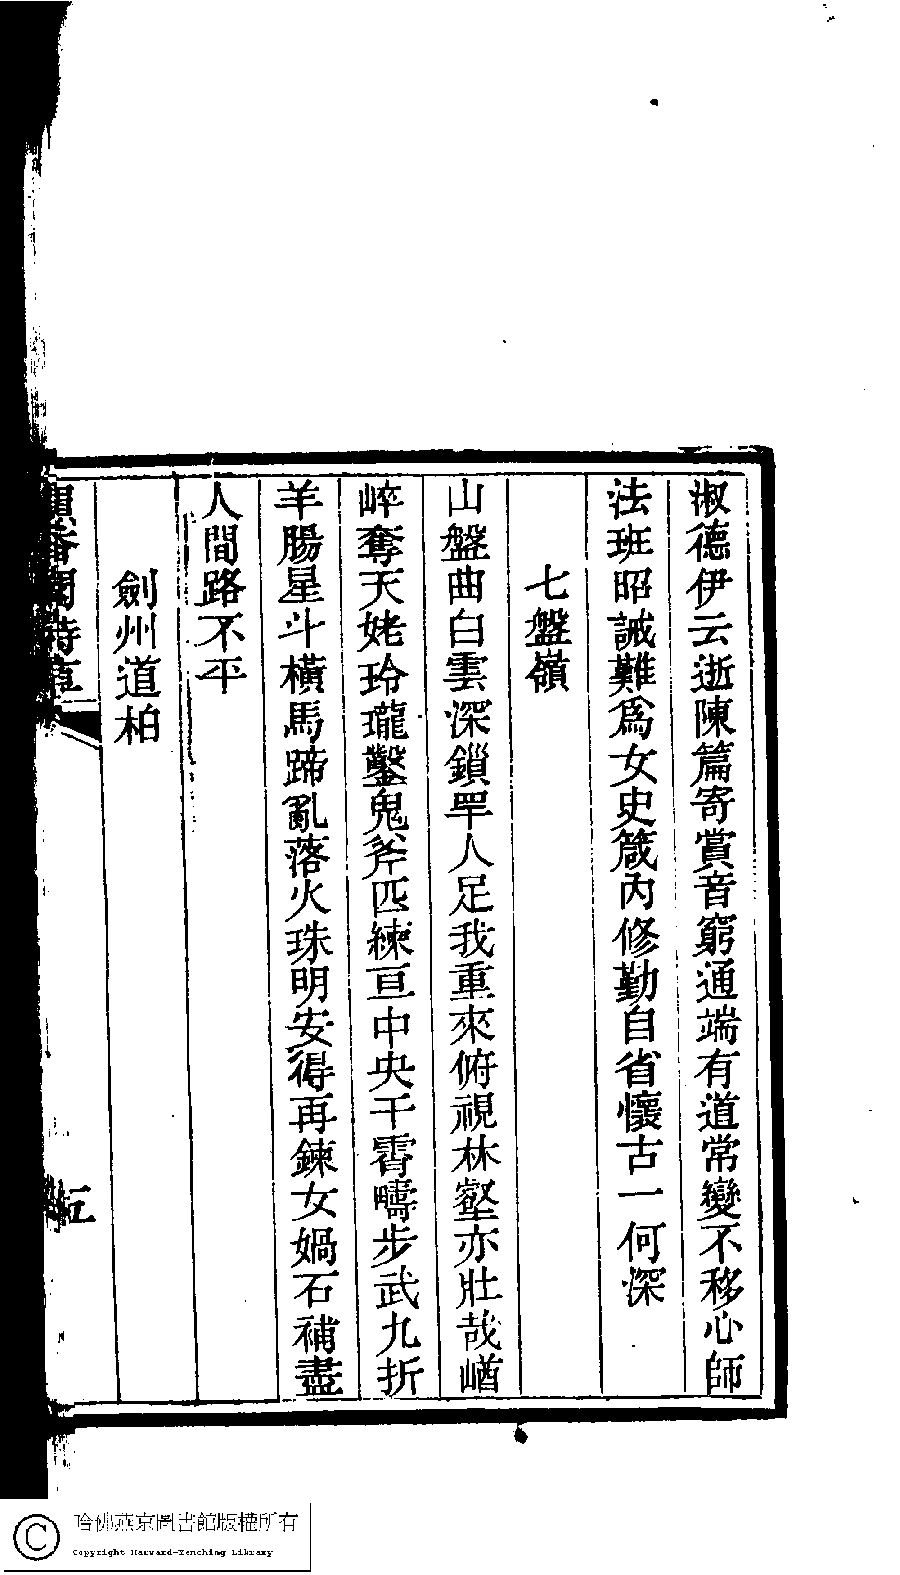 淑德伊云逝陳篇寄賞音窮通端有道常變不移心師
法班昭誡難爲女史箴內修勤自省懷古一何深
七盤嶺
山盤曲白雲深鎖罕人足我重來俯視林壑亦壯哉崷
崪奪天姥玲瓏鑿鬼斧匹練亘中央干霄疇步武九折
羊腸星斗橫馬蹄亂落火珠明安得再鍊女媧石補盡
人間路不平
劍州道柏
五
哈佛燕京圖書館版權所有
Copyright Harvard-Yenching Library